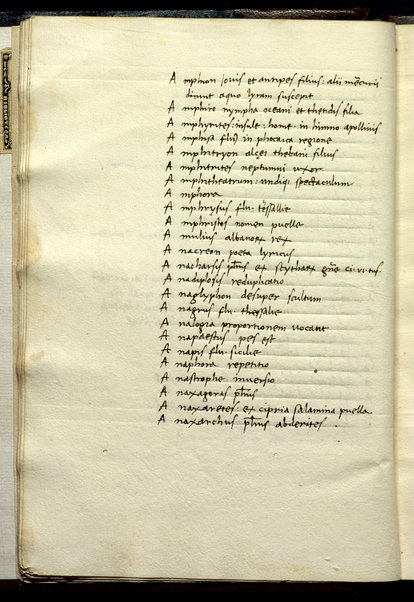 A mphion Iouis et antipes filius: alii mercurii
dicunt a quo lyram suscepit
A mphiro nympha oceani et thetidis filia
A mphyrites: insule: hom: in himno apollinis
A mphisa flu) in phocaica regione
A mphitryon alcei thebani filius
A mphitrites neptunni uxor
A mphitheatrum: undiq; spectaculum
A mphora
A mphrysus flu: tessalie
A mphristos nomen puelle
A mulius albanorum rex
A nacreon poeta lyricus
A nacharsis phus ex scytharum gñe ci: vi: tus.
A nadiplosis reduplicatio
A naglyphon desuper scultum
A nagrus flu: thessalie
A nalogia proportionem uocant
A napaestus pes est
A napis flu: sicilie
A naphora repetitio
A nastrophe inuersio
A naxagoras phus
A naxaretes ex cipria salamina puella
A naxarchus phus abderites .